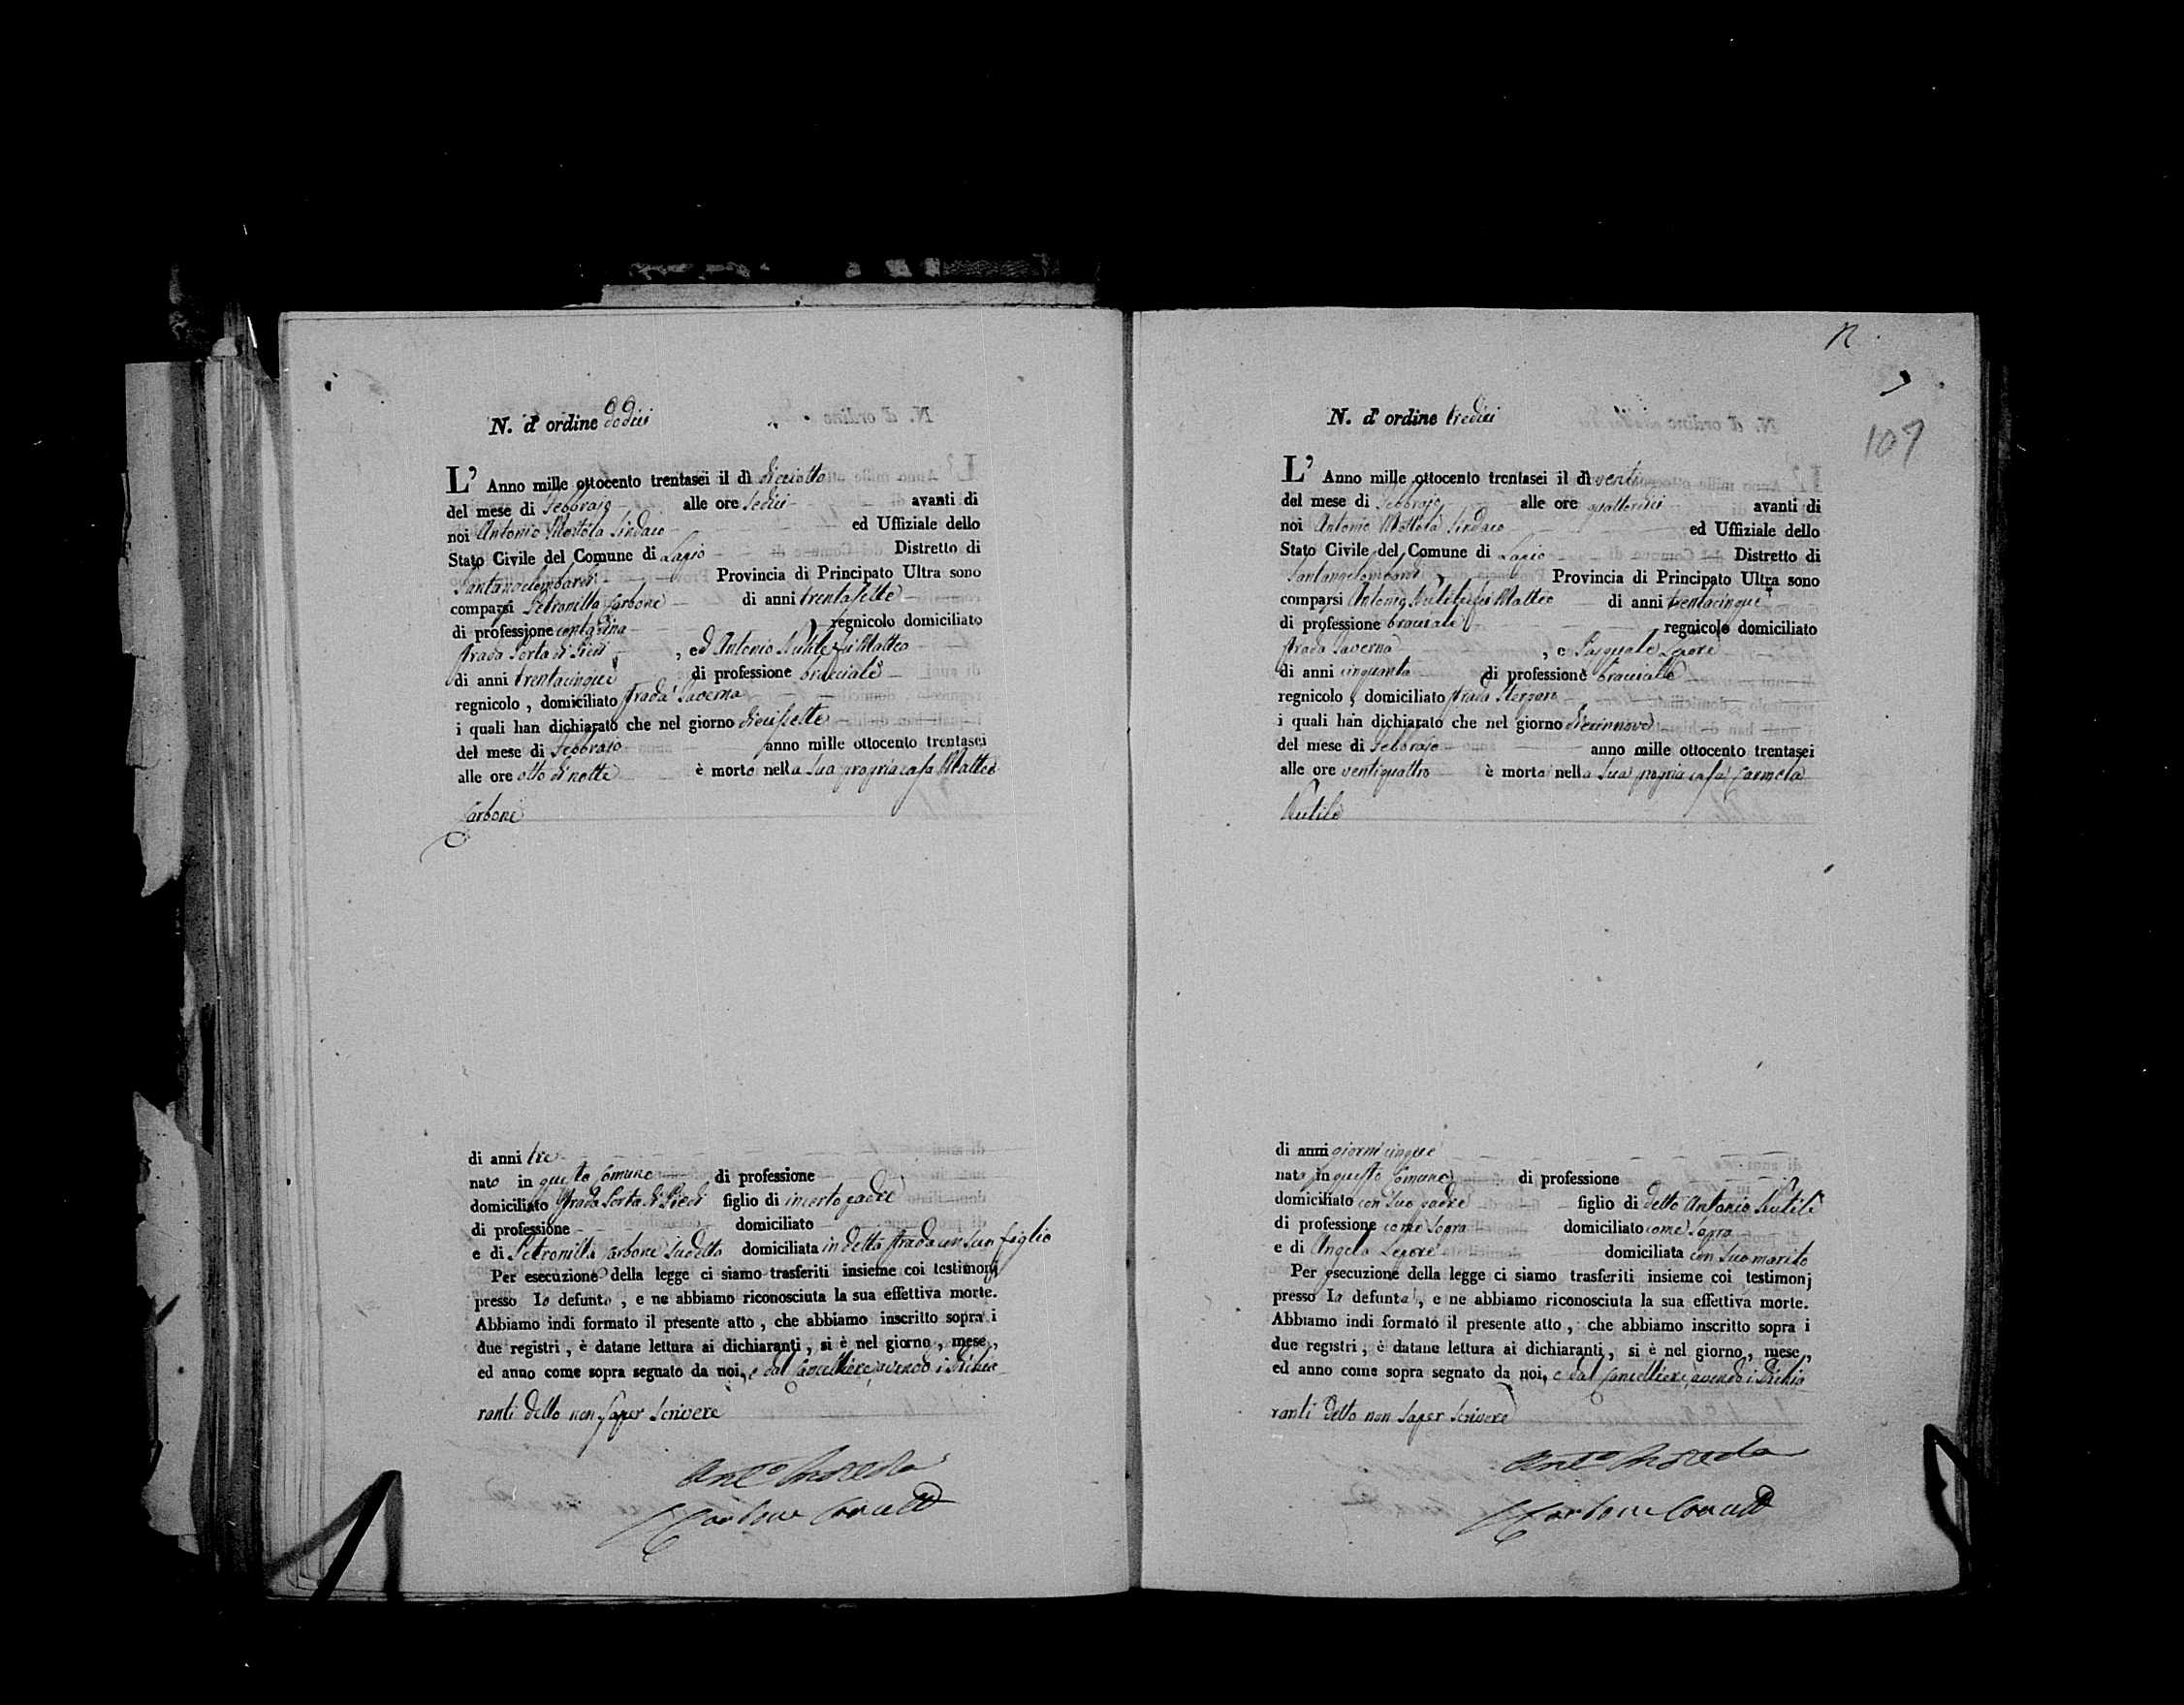 N. d' ordine dodici
L' Anno mille ottocento trentasei il dì diciotto
del mese di Febbrajo alle ore sedici avanti di
noi Antonio Mottola Sindaco ed Uffiziale dello
Stato Civile del Comune di Lapio Distretto di
Santangelombardi Provincia di Principato Ultra sono
comparsi Petronilla Carbone di anni trentasette
di professione contadina regnicolo domiciliato
strada Porta di Piedi , ed Antonio Nutile fu Matteo
di anni trentacinque di professione bracciale
regnicolo , domiciliato strada Taverna
i quali han dichiarato che nel giorno diciissette
del mese di Febbrajo anno mille ottocento trentasei
alle ore otto di notte è morto nella sua propria casa Matteo
Carbone
di anni tre
nato in questo Comune di professione
domiciliato strada Porta di Piedi figlio di incerto padre
di professione domiciliato
e di Petronilla Carbone sudetta domiciliata in detta strada con suo figlio
Per esecuzione della legge ci siamo trasferiti insieme coi testimonj
presso lo defunto , e ne abbiamo riconosciuta la sua effettiva morte.
Abbiamo indi formato il presente atto , che abbiamo inscritto sopra i
due registri , è datane lettura ai dichiaranti , si è nel giorno , mese ,
ed anno come sopra segnato da noi, e dal Cancelliere, avendo i Dichia
ranti detto non saper scrivere
Ant.o Mottola
Carbone Canc.
107
N. d' ordine tredici
L' Anno mille ottocento trentasei il dì venti
del mese di Febbrajo alle ore quattordici avanti di
noi Antonio Mottola Sindaco ed Uffiziale dello
Stato Civile del Comune di Lapio Distretto di
Santangelombardi Provincia di Principato Ultra sono
comparsi Antonio Nutile fu Matteo di anni trentacinque
di professione bracciale regnicolo domiciliato
strada Taverna , e Pasquale Lepore
di anni cinquanta di professione bracciale
regnicolo , domiciliato strada
i quali han dichiarato che nel giorno diecinnove
del mese di Febbrajo anno mille ottocento trentasei
alle ore ventiquattro è morta nella sua propria casa Carmela
Nutile
di anni giorni cinque
nata in questo Comune di professione
domiciliato con suo padre figlio di detto Antonio Nutile
di professione come sopra domiciliato come sopra
e di Angela Lepore domiciliata con suo marito
Per esecuzione della legge ci siamo trasferiti insieme coi testimonj
presso la defunta , e ne abbiamo riconosciuta la sua effettiva morte.
Abbiamo indi formato il presente atto , che abbiamo inscritto sopra i
due registri , è datane lettura ai dichiaranti , si è nel giorno , mese ,
ed anno come sopra segnato da noi, e dal Cancelliere, avendo i Dichia
ranti detto non saper scrivere
Ant.o Mottola
Carbone Canc.